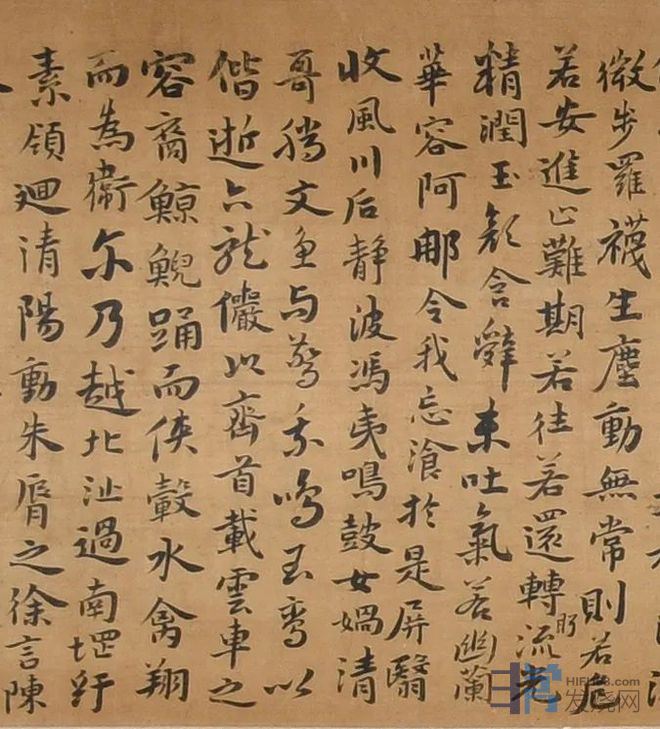 微步羅襪生塵動無常則若危
若安進止難期若往若還轉眄流光
精潤玉顏含辭未吐氣若幽蘭
華容阿那令我忘飡於是屏翳
收風川后静波馮夷鳴鼓女媧清
哥騰文魚与警乘鳴玉鸞以
偕逝六龍儼以齊首載雲車之
容裔鯨鯢踊而俠轂水禽翔
而為衛尔乃越北沚過南堽紆
素領迴清陽動朱脣之徐言陳
发烧网